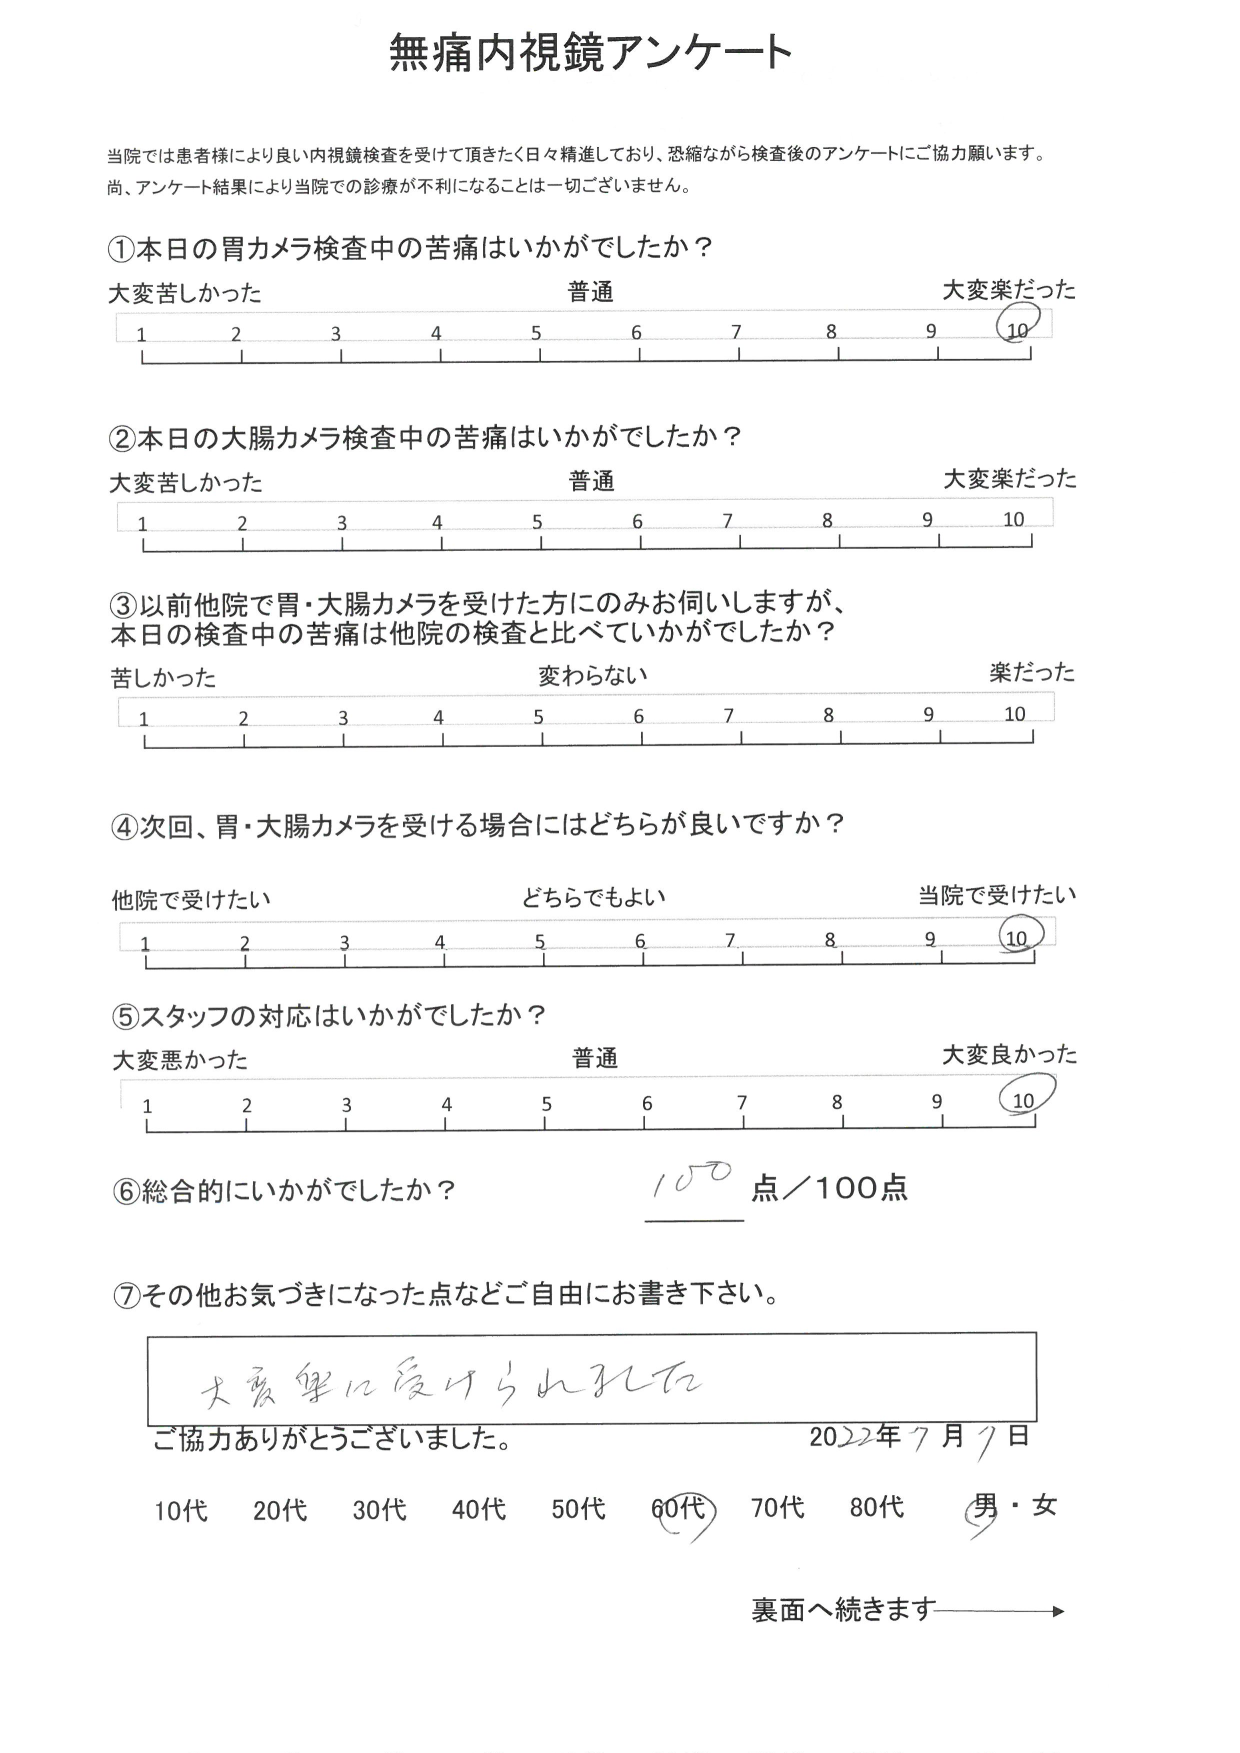 無痛内視鏡アンケート
当院では患者様により良い内視鏡検査を受けて頂きたく日々精進しており、恐縮ながら検査後のアンケートにご協力願います。
尚、アンケート結果により当院での診療が不利になることは一切ございません。
①本日の胃カメラ検査中の苦痛はいかがでしたか？
大変苦しかった 普通 大変楽だった
1 2 3 4 5 6 7 8 9 10
②本日の大腸カメラ検査中の苦痛はいかがでしたか？
大変苦しかった 普通 大変楽だった
1 2 3 4 5 6 7 8 9 10
③以前他院で胃・大腸カメラを受けた方にのみお伺いしますが、
本日の検査中の苦痛は他院の検査と比べていかがでしたか？
苦しかった 変わらない 楽だった
1 2 3 4 5 6 7 8 9 10
④次回、胃・大腸カメラを受ける場合にはどちらが良いですか？
他院で受けたい どちらでもよい 当院で受けたい
1 2 3 4 5 6 7 8 9 10
⑤スタッフの対応はいかがでしたか？
大変悪かった 普通 大変良かった
1 2 3 4 5 6 7 8 9 10
⑥総合的にいかがでしたか？ 100 点／100点
⑦その他お気づきになった点などご自由にお書き下さい。
大変楽に受けられました
ご協力ありがとうございました。 2022年7月7日
10代 20代 30代 40代 50代 60代 70代 80代 男・女
裏面へ続きます